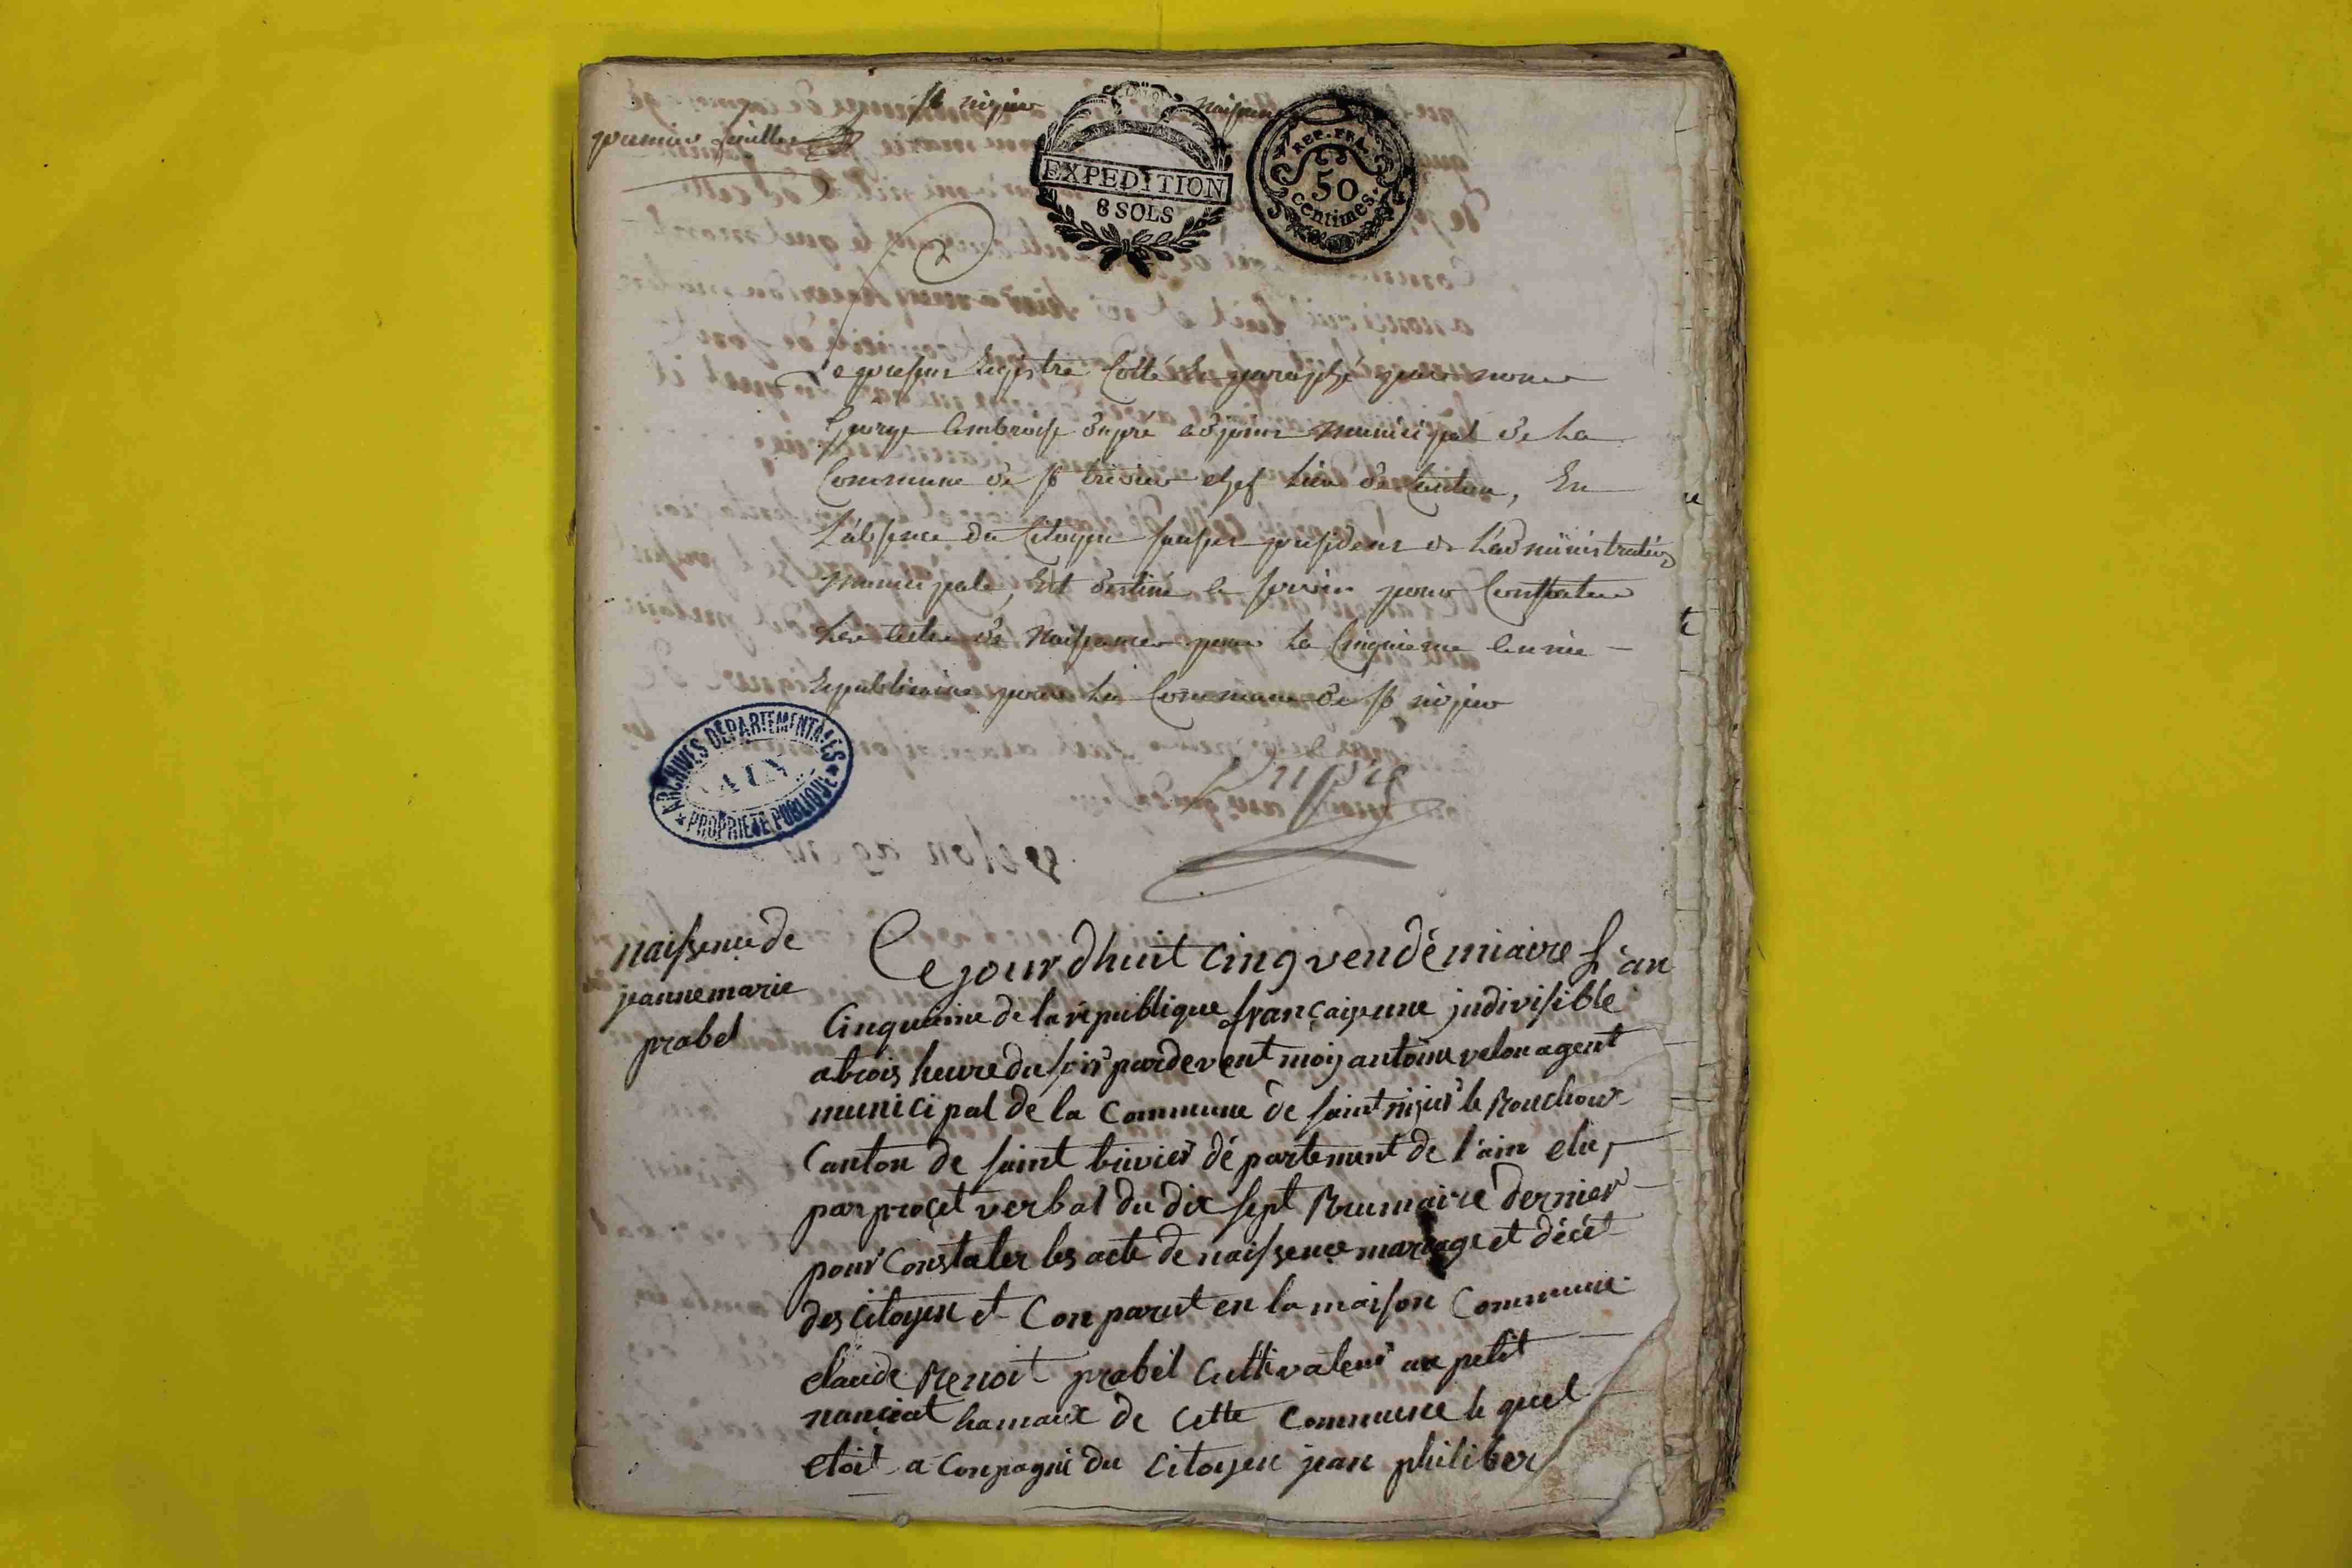 St nizier
naissance
premier feuillet
EXPEDITION
8 SOLS
REP. FRA.
50
centimes.
Le present Registre Cotté et paraphé par nous
George Ambroise dupré adjoint municipal de la
Commune de St trivier chef Lieu de Canton, En
L'absence du Citoyen president de L'administration
municipale, Est destiné a servir pour Constater
Les actes de Naissances pour la Cinquieme année
Republicaine pour la Commune de St nizier
Dupré
ARCHIVES DÉPARTEMENTALES
AIN
PROPRIÉTÉ PUBLIQUE
naissence de
jeanne marie
prabel
Ce jour dhuit cinq vendémiaire l'an
Cinquieme de la république françaiseune jndivisible
a trois heure du soir pardevent moij antoine velon agent
municipal de la Commune de saint nizier le Bouchoux
Canton de saint trivier département de l'ain elu
par procet verbal du dix sept Brumaire dernier
pour Constater les acte de naissence mariage et décet
des citoyen et Conparut en la maison Commune
claude Benoit prabel Cultivateur au petit
nanciat hamaux de cette Commune le quel
etoit a Conpagni du Citoyen jean philiber